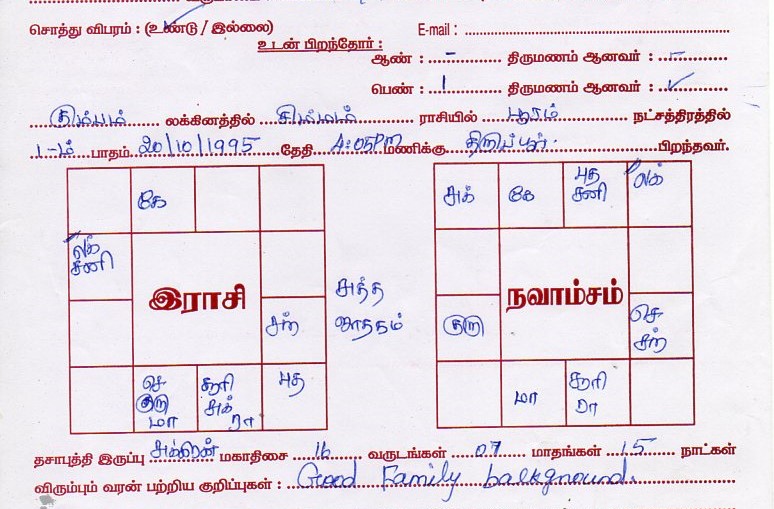 சொத்து விபரம் : (உண்டு / இல்லை) E-mail :
உடன் பிறந்தோர் :
ஆண் : - திருமணம் ஆனவர் : -
பெண் : 1 திருமணம் ஆனவர் : ✓
கும்பம் லக்கினத்தில் சிம்மம் ராசியில் பூரம் நட்சத்திரத்தில்
1-ம் பாதம் 20/10/1995 தேதி 4:05PM மணிக்கு திருப்பூர். பிறந்தவர்.
கே
லக்
சனி
இராசி
சந்
செ
குரு
மா
சூரி
சுக்
ரா
புத
ஜாதகம்
சுக்
கே
புத
சனி
லக்
நவாம்சம்
குரு
செ
சந்
மா
சூரி
ரா
தசாபுத்தி இருப்பு சுக்ரன் மகாதிசை 16 வருடங்கள் 07 மாதங்கள் 15 நாட்கள்
விரும்பும் வரன் பற்றிய குறிப்புகள் : Good Family background.